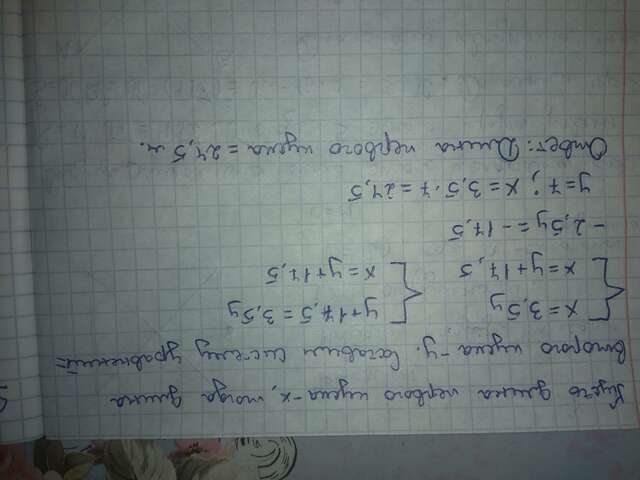 Пусть длина первого куска - x, тогда длина
второго куска - y. Составим систему уравнений:
{ x = 3,5y { y + 17,5 = 3,5y
{ x = y + 17,5 { x = y + 17,5
- 2,5y = - 17,5
y = 7 ; x = 3,5 · 7 = 24,5
Ответ: Длина первого куска = 24,5 м.